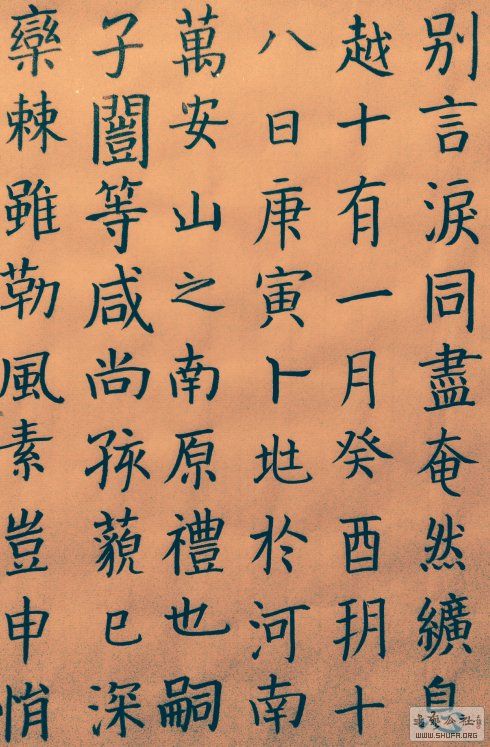 别言淚同盡奄然纊息
越十有一月癸酉玥十
八日庚寅卜地於河南
萬安山之南原禮也嗣
子闓等咸尚孩藐已深
欒棘雖勒風素豈申悄
WWW.SHUFA.ORG